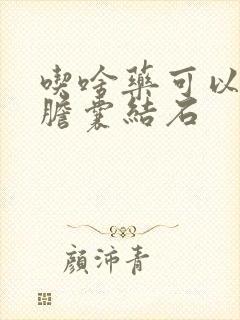 喫啥藥可以
膽囊結石
顏沛青